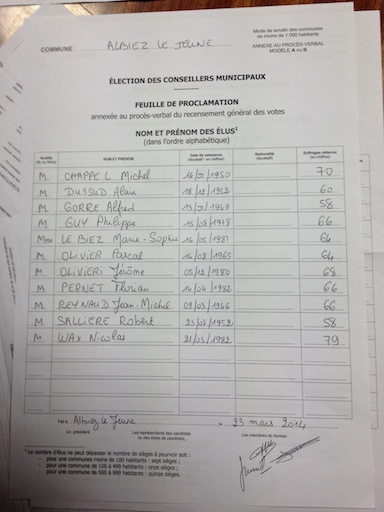 Mode de scrutin des communes
de moins de 1 000 habitants
COMMUNE ALBIEZ LE JEUNE
ANNEXE AU PROCÈS-VERBAL
MODÈLE A ou B
ÉLECTION DES CONSEILLERS MUNICIPAUX
FEUILLE DE PROCLAMATION
annexée au procès-verbal du recensement général des votes
NOM ET PRÉNOM DES ÉLUS¹
(dans l'ordre alphabétique)
Qualité (M. ou Mme) NOM ET PRÉNOM Date de naissance (facultatif - en chiffres) Nationalité (facultatif) Suffrages obtenus (en chiffres)
M. CHAPPEL Michel 1950 70
M. DUSSUD Alain 18/12/1952 60
M. GORRE Alfred 1949 58
M. GUY Philippe 15/08/1978 66
Mme LE BIEZ Marie-Sophie 16/05/1981 64
M. OLIVIER Pascal 14/08/1965 64
M. OLIVIERI Jérôme 05/12/1980 68
M. PERNET Florian 14/04/1982 66
M. REYNAUD Jean-Michel 09/03/1946 66
M. SALLIERE Robert 23/07/1952 58
M. WAX Nicolas 21/03/1982 79
Fait à Albiez le Jeune, le 23 mars 2014
Le président, Les représentants des candidats Les membres du bureau
ou des listes de candidats,
¹ Le nombre d'élus ne peut dépasser le nombre de sièges à pourvoir soit :
- pour une communes moins de 100 habitants : sept sièges ;
- pour une commune de 100 à 499 habitants : onze sièges ;
- pour une commune de 500 à 999 habitants : quinze sièges.